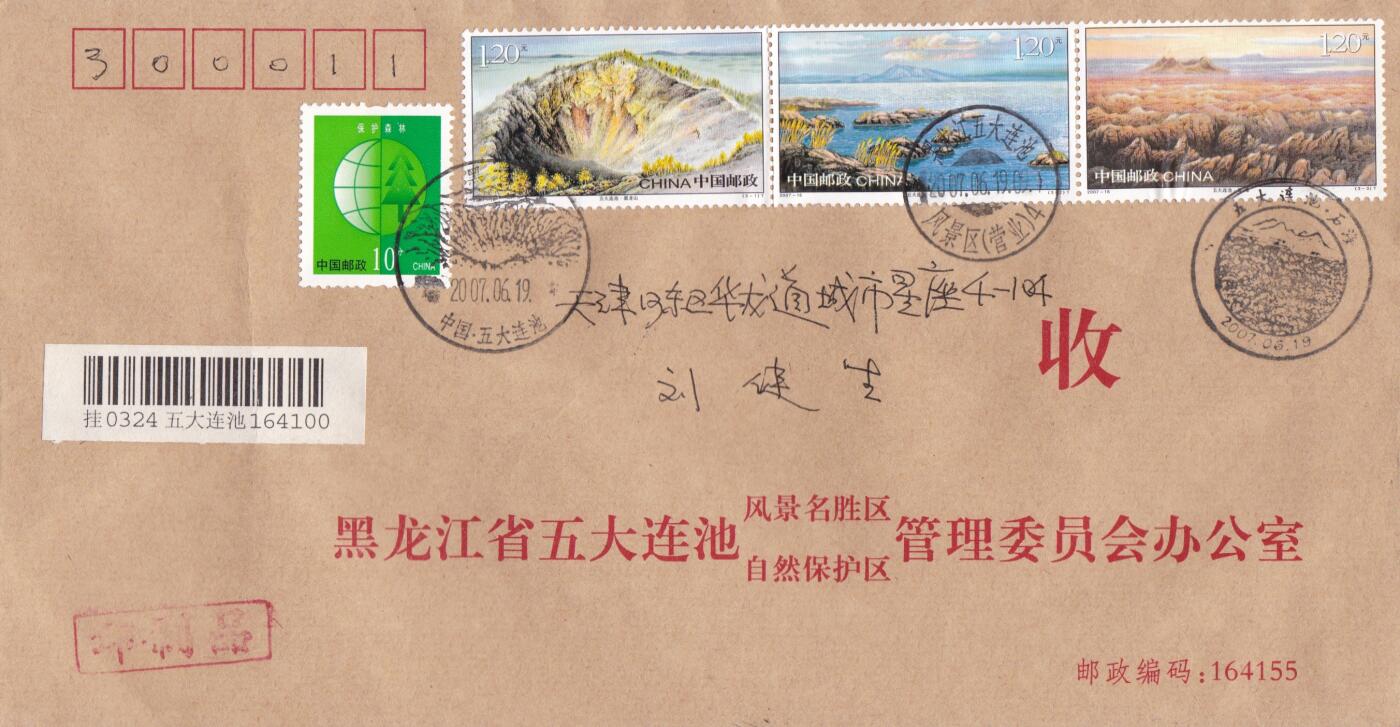 300011
1.20元
中国邮政 CHINA
1.20元
CHINA 中国邮政
五大连池·黑龙山
2007-16
1.20元
中国邮政 CHINA
五大连池
2007-16
保护森林
中国邮政 10分 CHINA
2007.06.19.
中国·五大连池
黑龙江五大连池
2007.06.19.09
风景区(营业)4
五大连池·石海
2007.06.19
天津河东区华龙道城市星座4-104
刘健生
收
挂0324 五大连池164100
黑龙江省五大连池风景名胜区自然保护区管理委员会办公室
印刷品
邮政编码:164155